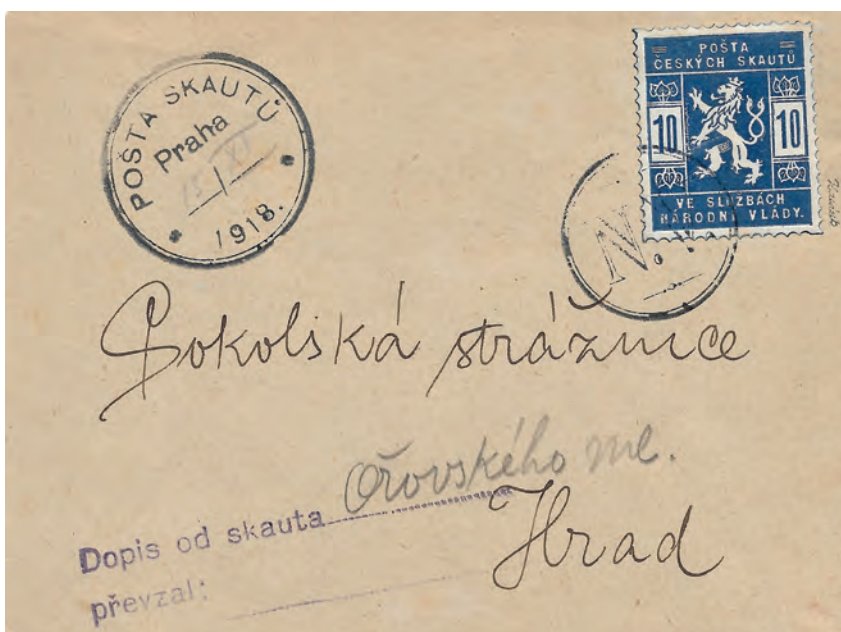 POŠTA SKAUTŮ
Praha
15 XI
1918.
POŠTA
ČESKÝCH SKAUTŮ
10 10
VE SLUŽBÁCH
NÁRODNÍ VLÁDY.
N.
Sokolská strážnice
Hrad
Dopis od skauta
převzal: